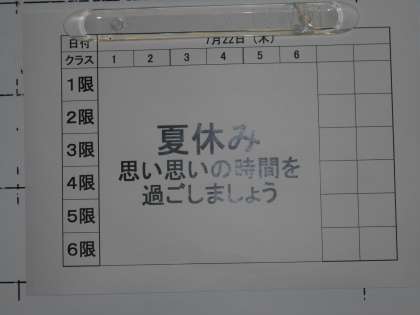 日付 7月22日（木）
クラス 1 2 3 4 5 6
1限
2限
3限
4限
5限
6限
夏休み
思い思いの時間を
過ごしましょう